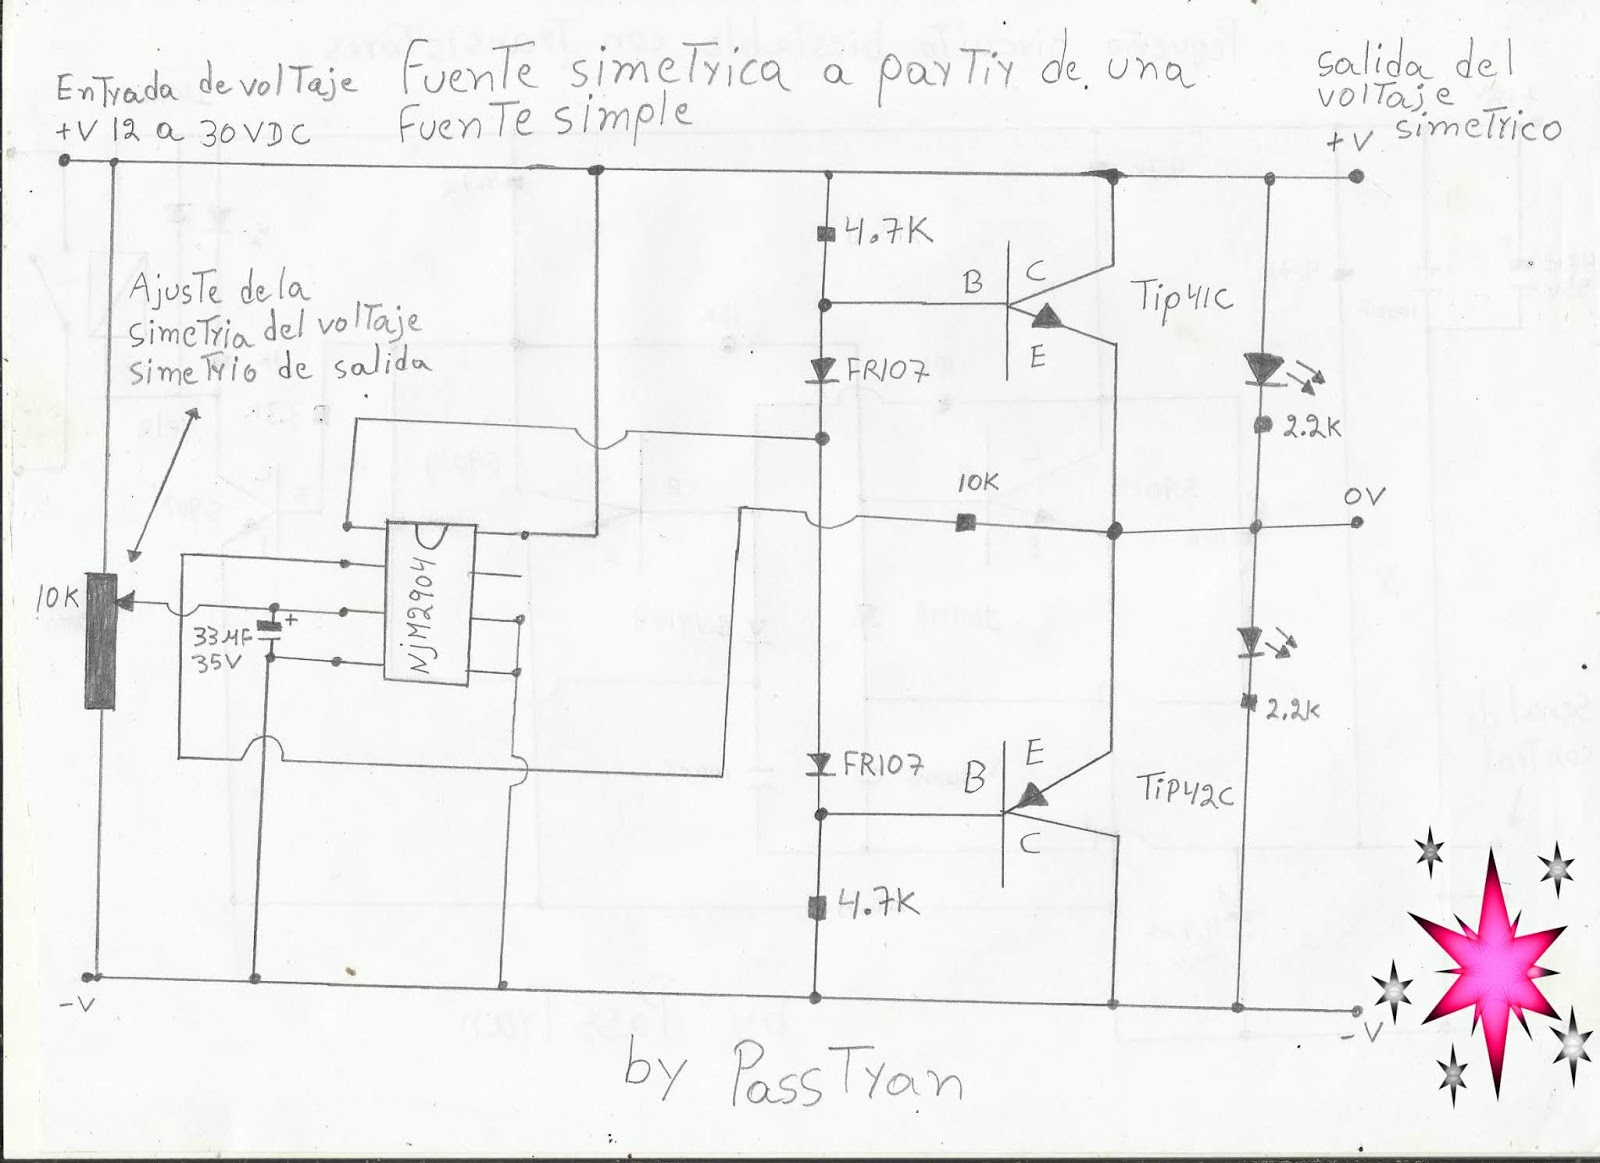 Entrada de voltaje
+V 12 a 30VDC
Fuente simetrica a partir de una
Fuente simple
Salida del
voltaje
simetrico
+V
Ajuste de la
simetria del voltaje
simetrio de salida
4.7K
B
C
E
Tip41C
FR107
2.2K
10K
0V
10K
33µF
35V
+
NJM2904
2.2K
FR107
B
E
C
TiP42C
4.7K
-V
-V
by PassTyan